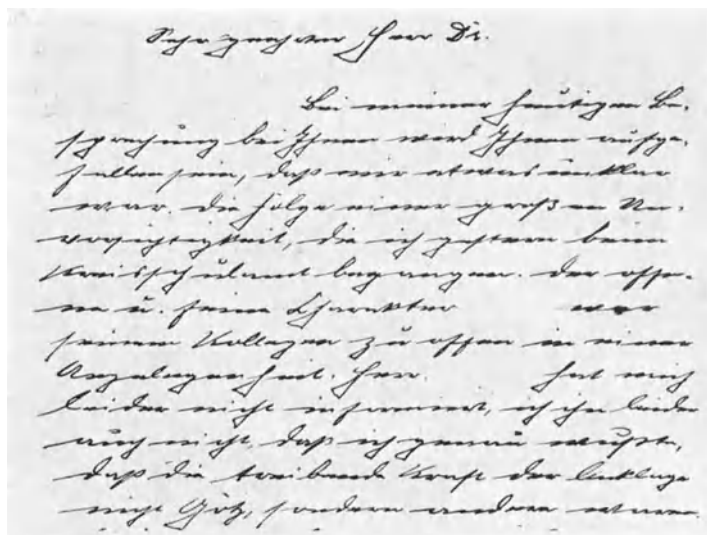 Sehr geehrter Herr Dr.
Bei meiner heutigen Be-
sprechung bei Ihnen wird Ihnen aufge-
fallen sein, daß mir etwas unklar
war. Die Folge einer großen Un-
vorsichtigkeit, die ich gestern beim
Kreisschulamt begangen. Der offe-
ne u. feine Charakter war
seinem Kollegen zu offen in einer
Angelegenheit. Herr hat mich
leider nicht informiert, ich ihn leider
auch nicht, daß ich genau wußte,
daß die treibende Kraft der Anklage
nicht Götz, sondern andere waren.